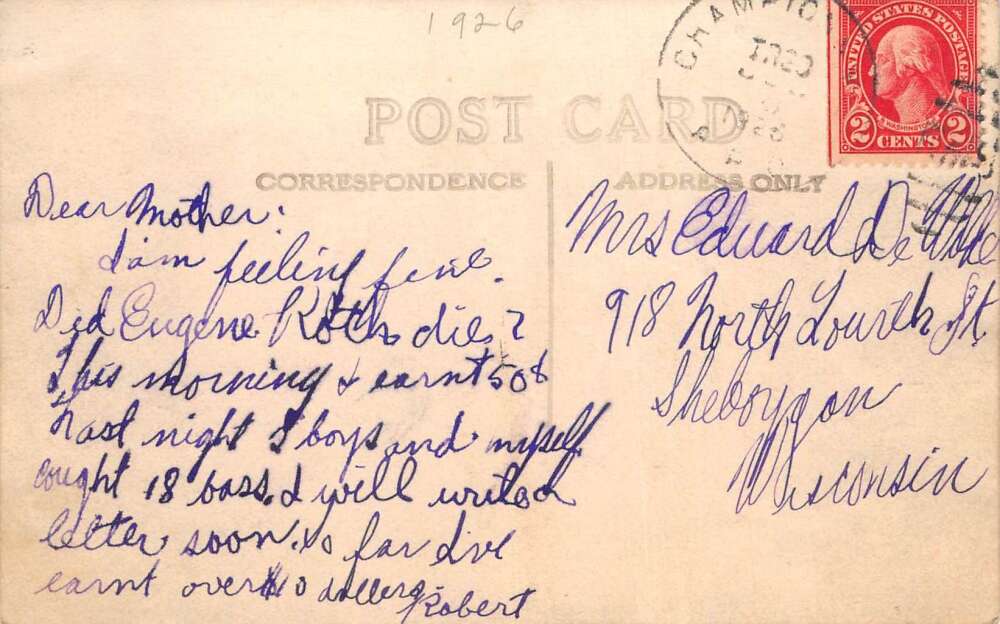 1926
CHAMPION
1926
UNITED STATES POSTAGE
WASHINGTON
2 CENTS 2
POST CARD
CORRESPONDENCE
ADDRESS ONLY
Dear Mother:
I am feeling fine.
Did Eugene Roth die?
This morning I earnt 50¢
Last night 3 boys and myself
cought 18 bass. I will write a
letter soon. So far I've
earnt over $10 dollers
Robert
Mrs Eduard De
918 North Fourth St.
Sheboygan
Wisconsin